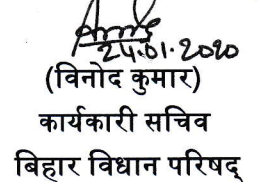 24.01.2020
(विनोद कुमार)
कार्यकारी सचिव
बिहार विधान परिषद्